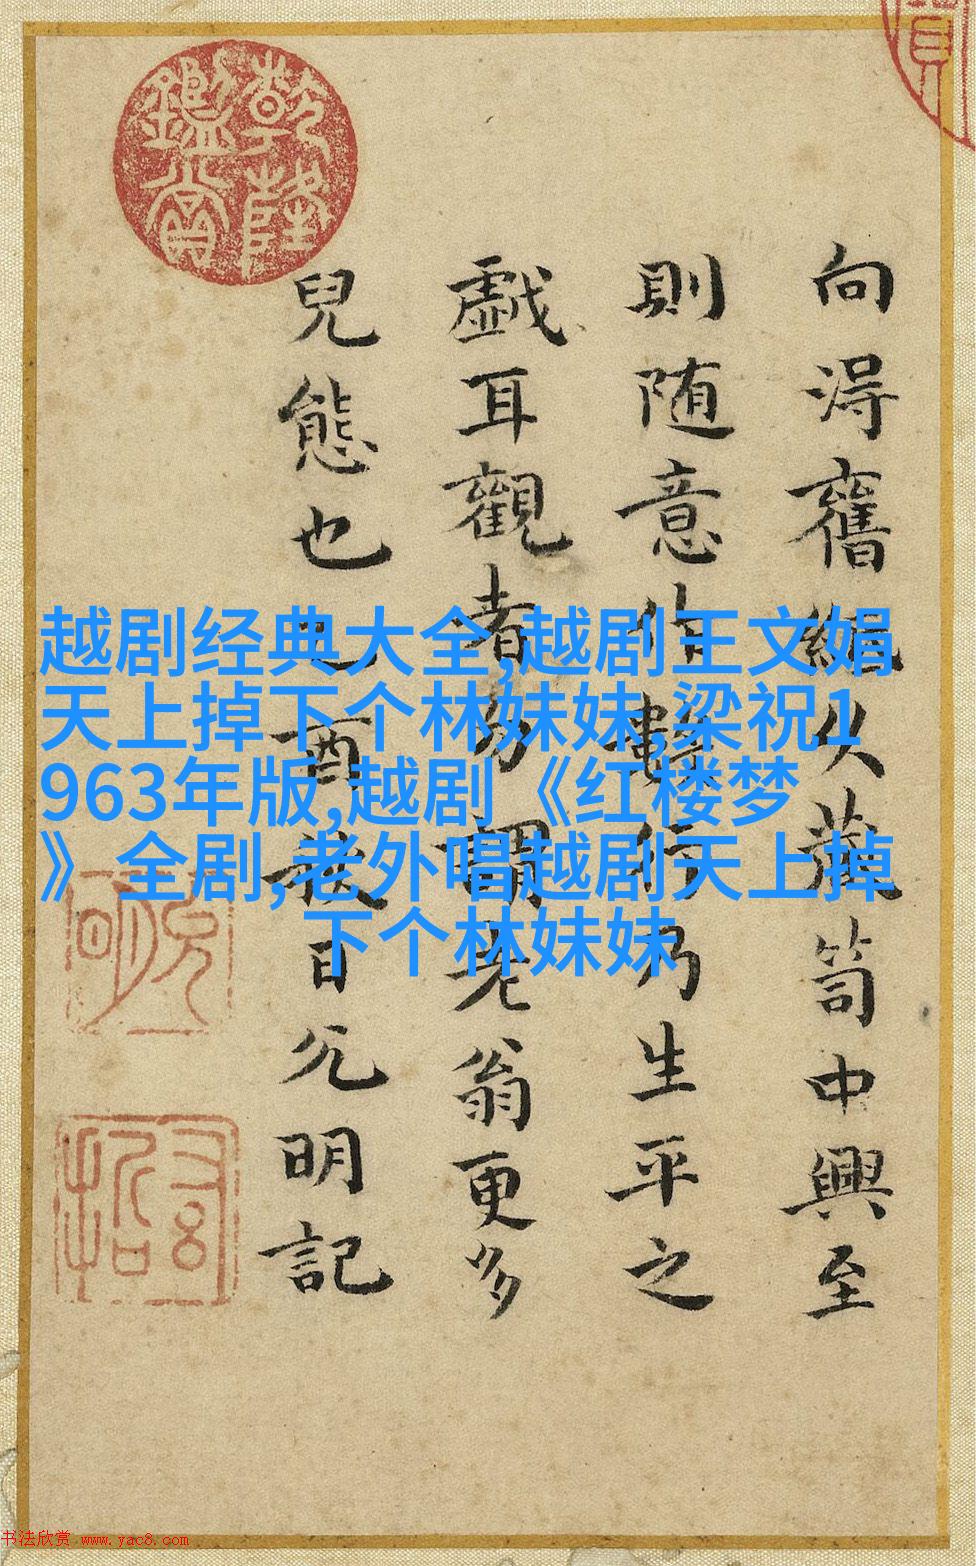 越剧经典大全,越剧王文娟
天上掉下个林妹妹,梁祝1
963年版,越剧《红楼梦
》全剧,老外唱越剧天上掉
下个林妹妹
向淂舊紙久藏笥中興至
則随意作數行乃生平之
戲耳觀者勿謂老翁更多
兒態也酉日允明記
乾隆
鑑賞
书法欣赏 www.yac8.com